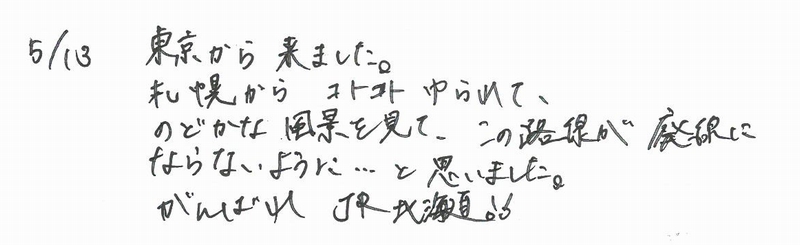 5/13 東京から 来ました。
札幌から コトコト ゆられて、
のどかな 風景を見て、この路線が 廃線に
ならないように…と 思いました。
がんばれ JR北海道